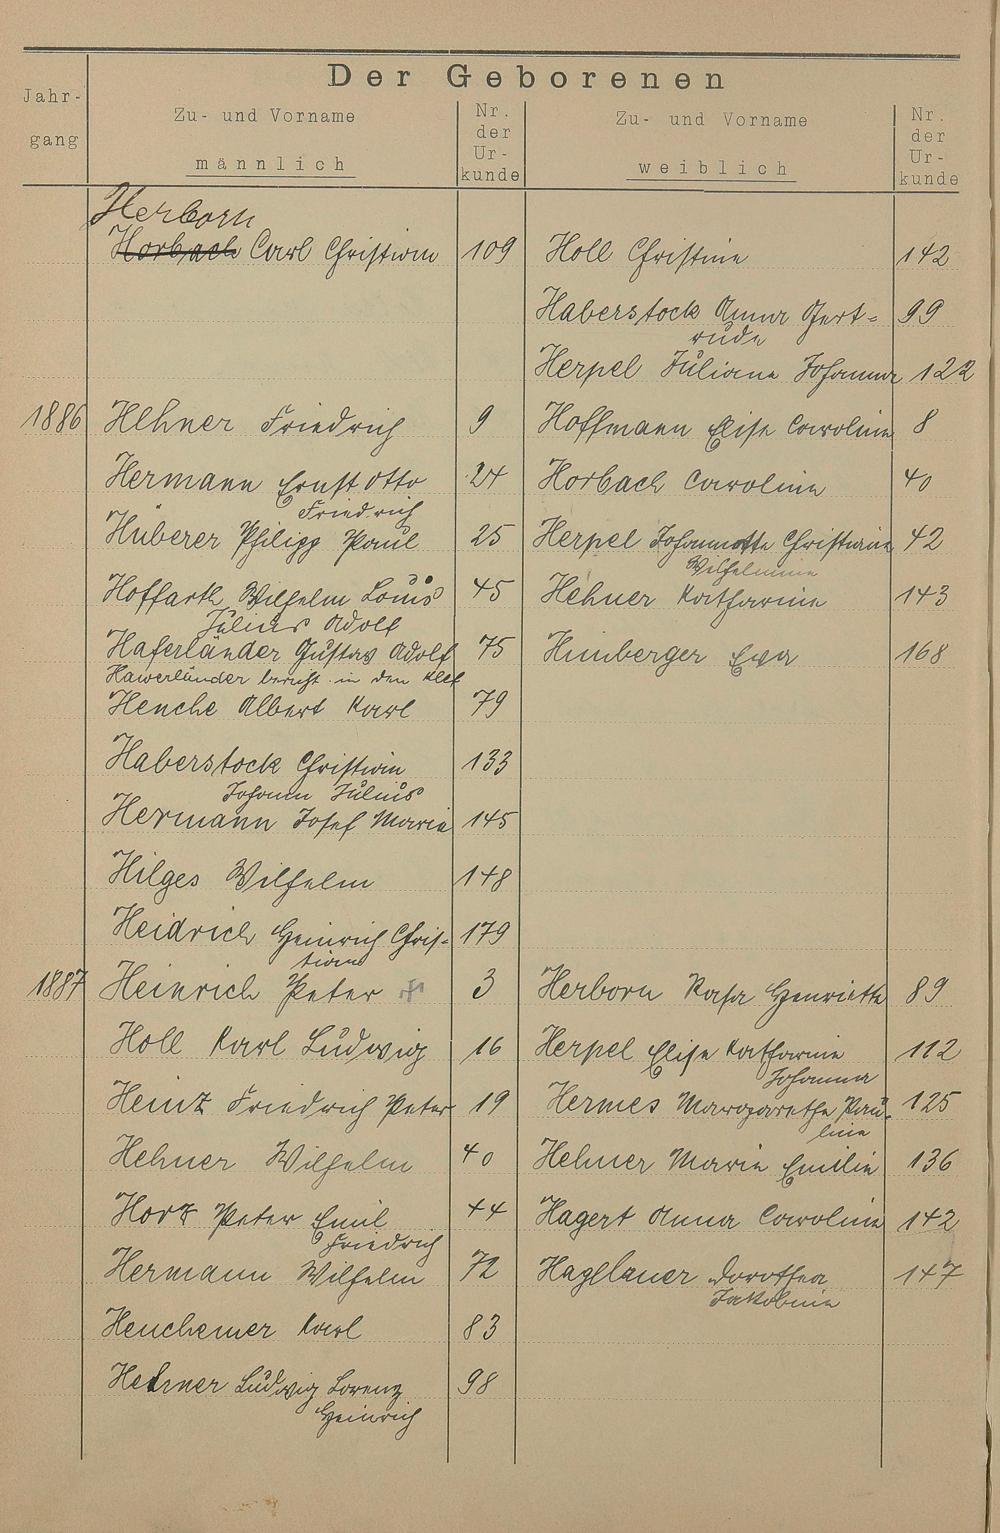 Der Geborenen
Jahr-
gang
Zu- und Vorname
männlich
Nr.
der
Ur-
kunde
Zu- und Vorname
weiblich
Nr.
der
Ur-
kunde
Herborn
Horbach Carl Christian 109 Holl Christine 142
Haberstock Anna Gert= 99
rude
Herpel Juliane Johanna 122
1886 Hehner Friedrich 9 Hoffmann Elise Caroline 8
Hermann Ernst Otto 24 Horbach Caroline 40
Friedrich
Huberer Philipp Paul 25 Herpel Johannette Christiane 42
Wilhelmine
Hoffarth Wilhelm Louis 45 Hehner Katharine 143
Julius Adolf
Haferländer Gustav Adolf 75 Himberger Eva 168
Hawerländer bericht. in den
Henche Albert Karl 79
Haberstock Christian 133
Johann Julius
Hermann Josef Maria 145
Hilges Wilhelm 148
Heidrich Heinrich Chris- 179
tian
1887 Heinrich Peter 3 Herborn Rosa Henriette 89
Holl Karl Ludwig 16 Herpel Elise Katharine 112
Johanna
Heinz Friedrich Peter 19 Hermes Margarethe Pau- 125
line
Hehner Wilhelm 40 Hehner Marie Emilie 136
Horz Peter Emil 44 Hagert Anna Caroline 142
Friedrich
Hermann Wilhelm 72 Haglauer Dorothea 147
Jakobine
Henchemer Karl 83
Hehner Ludwig Lorenz 98
Heinrich